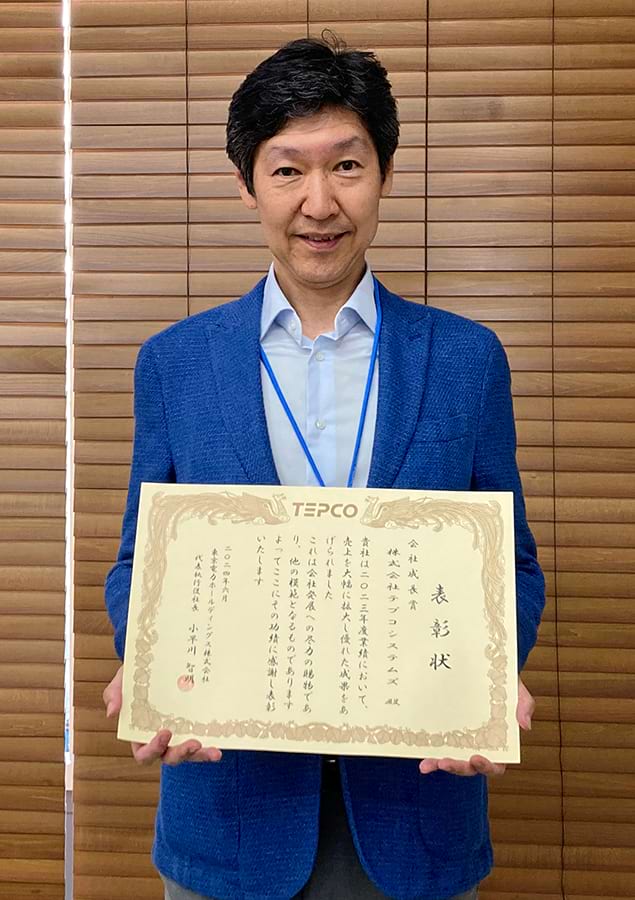 TEPCO
表彰状
会社成長賞
株式会社テプコシステムズ 殿
貴社は二〇二三年度業績において、
売上を大幅に拡大し優れた成果をあ
げられました
これは会社発展への尽力の賜物であ
り、他の模範となるものであります
よってここにその功績に感謝し表彰
いたします
二〇二四年六月
東京電力ホールディングス株式会社
代表執行役社長 小早川 智明